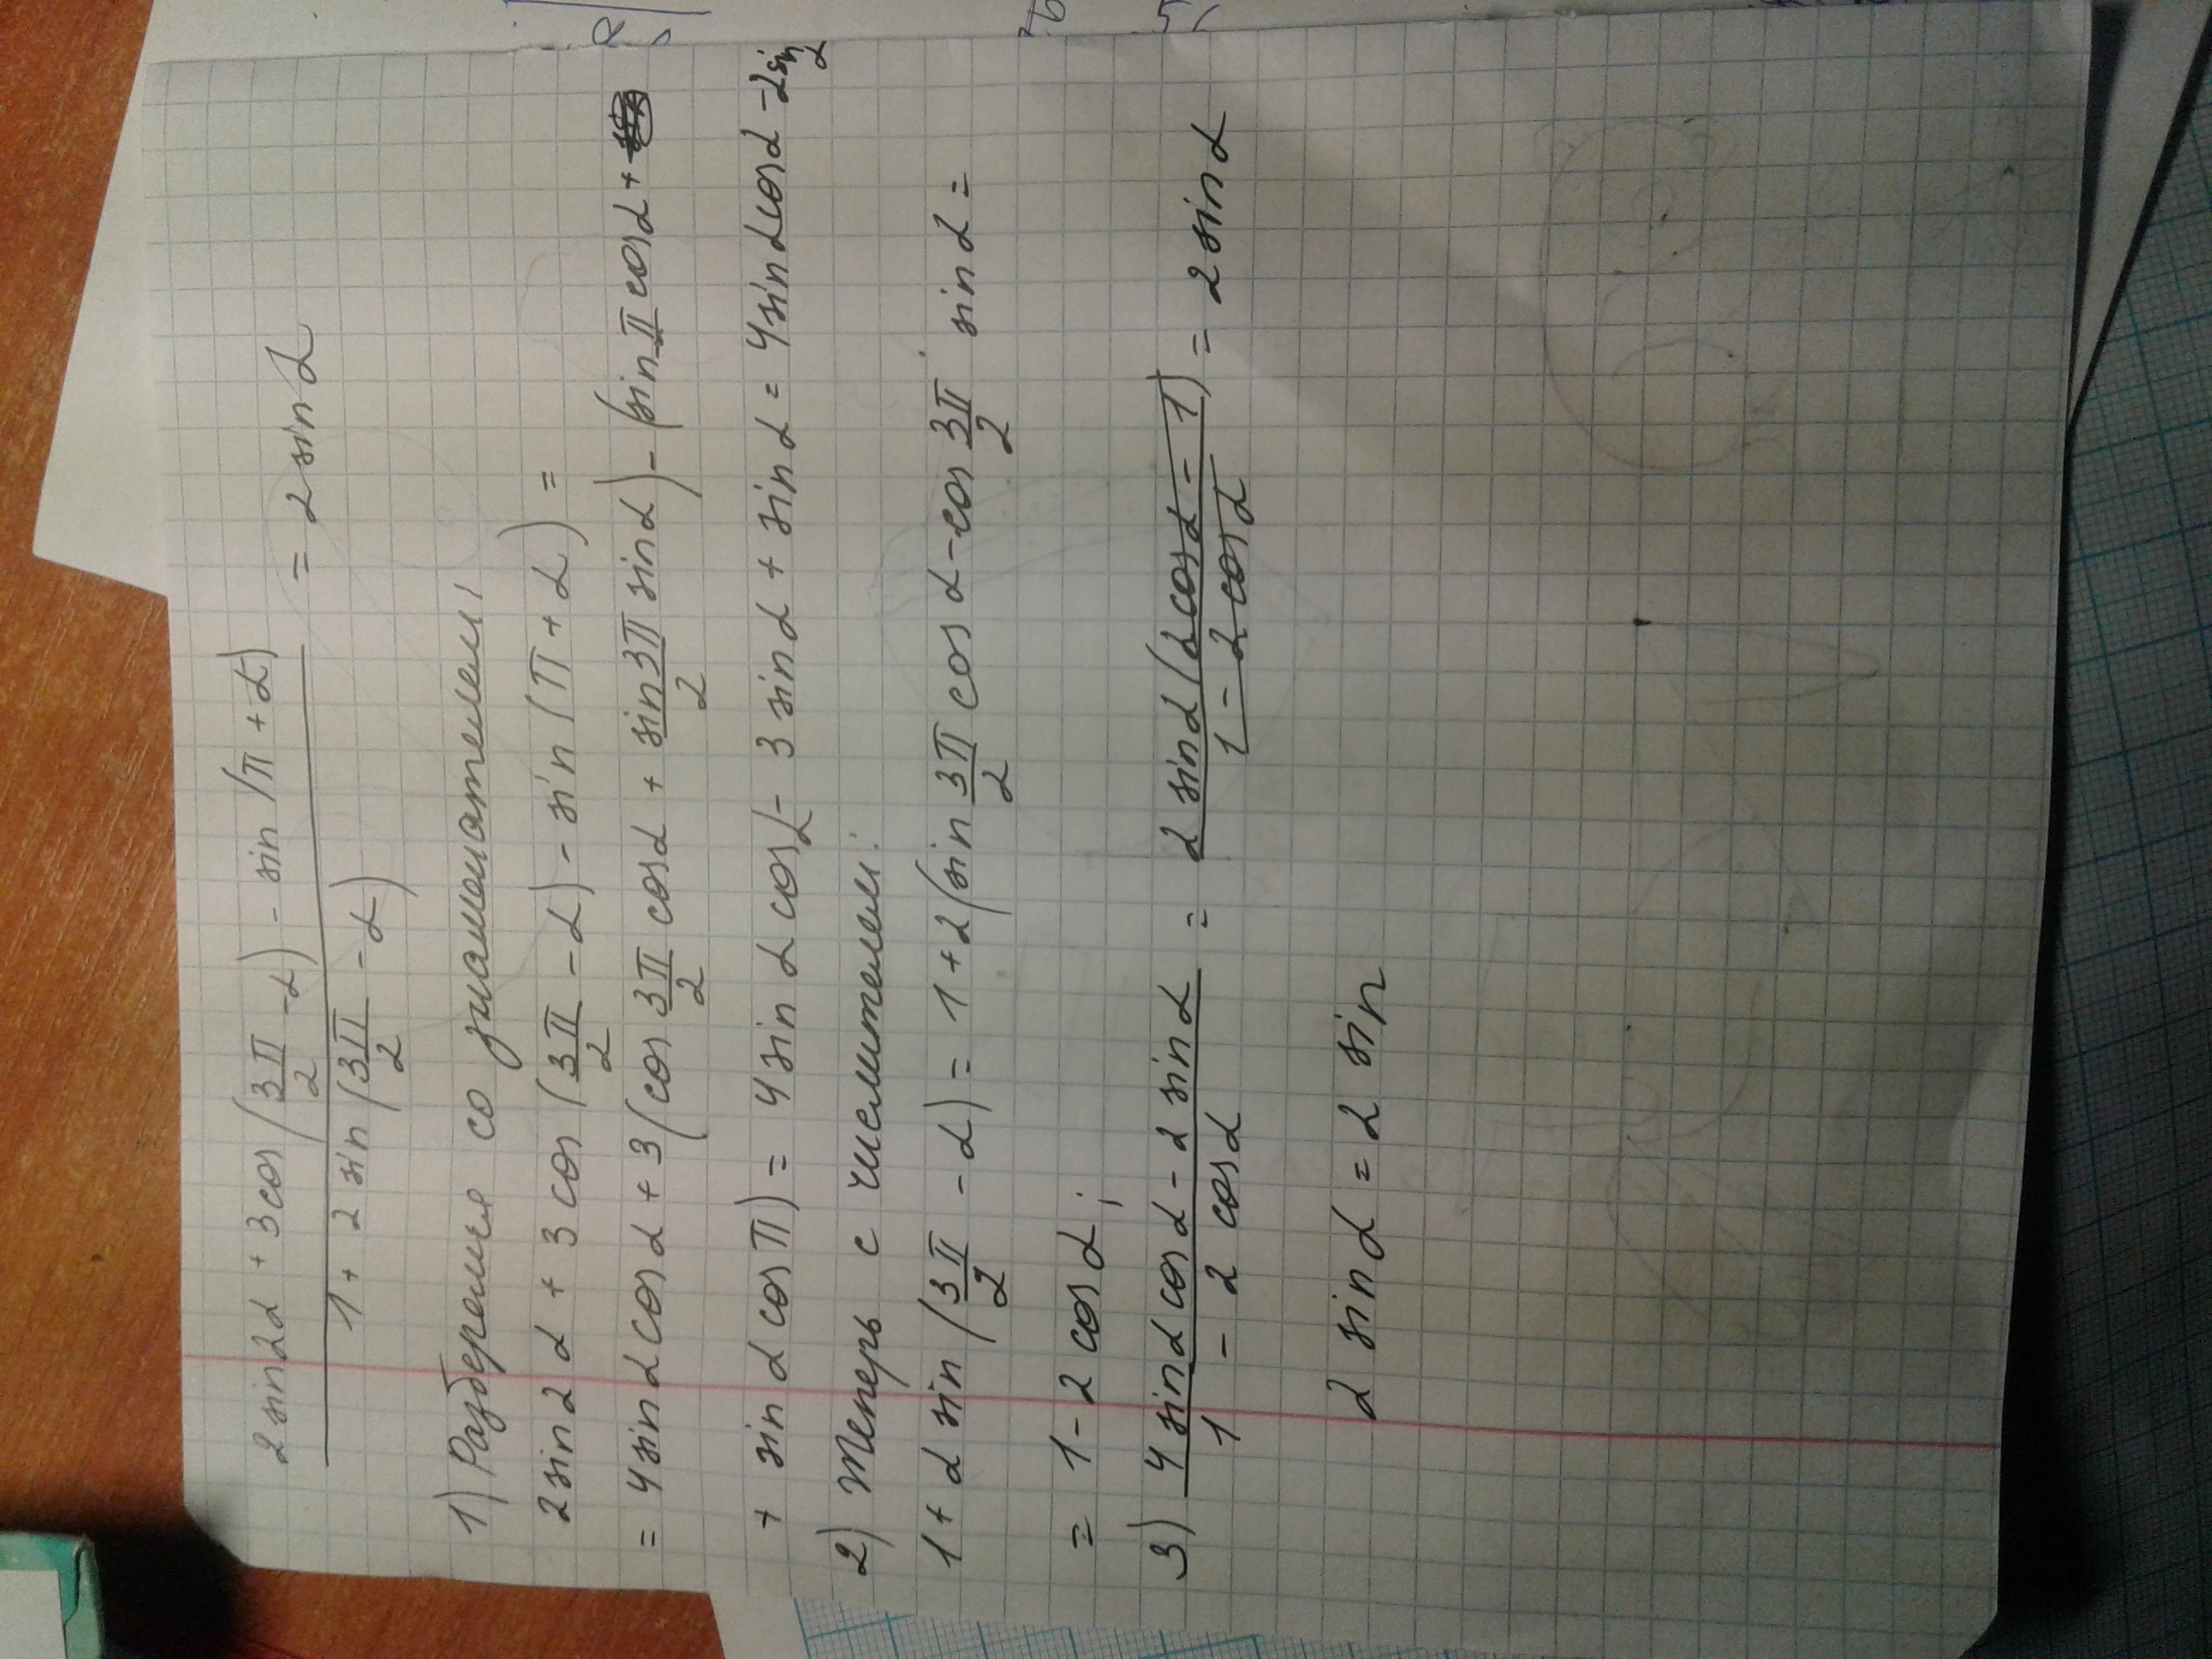 2 sin2α + 3cos(3π/2 - α) - sin(π + α) / 1 + 2 sin(3π/2 - α) = 2 sin α
1) Разберемся со знаменателем:
2 sin2α + 3 cos(3π/2 - α) - sin(π + α) =
= 4 sin α cos α + 3(cos 3π/2 cos α + sin 3π/2 sin α) - (sin π cos α +
+ sin α cos π) = 4 sin α cos α - 3 sin α + sin α = 4 sin α cos α - 2 sin α
2) Теперь с числителем:
1 + 2 sin(3π/2 - α) = 1 + 2(sin 3π/2 cos α - cos 3π/2 sin α =
= 1 - 2 cos α;
3) 4 sin α cos α - 2 sin α / 1 - 2 cos α = 2 sin α (2 cos α - 1) / 1 - 2 cos α = 2 sin α
2 sin α = 2 sin